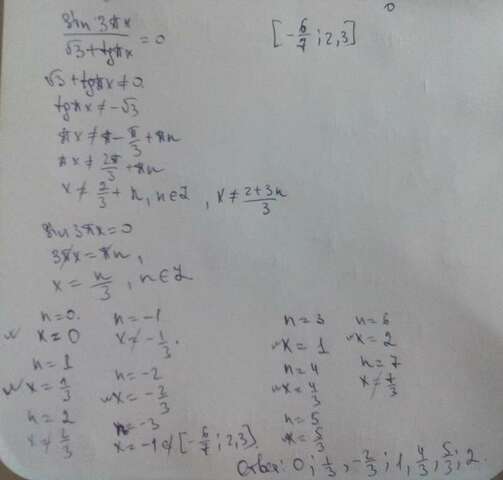 sin 3πx / √3 + tgπx = 0
[-6/7 ; 2,3]
√3 + tgπx ≠ 0
tgπx ≠ -√3
πx ≠ π - π/3 + πn
πx ≠ 2π/3 + πn
x ≠ 2/3 + n, n∈Z, x ≠ 2+3n/3
sin 3πx = 0
3πx = πn,
x = n/3, n∈Z
n = 0.
x = 0
n = 1
x = 1/3
n = 2
x ≠ 2/3
n = -1
x ≠ -1/3.
n = -2
x = -2/3
n = -3
x = -1 ∉ [-6/7 ; 2,3]
n = 3
x = 1
n = 4
x = 4/3
n = 5
x = 5/3
n = 6
x = 2
n = 7
x ≠ 7/3
Ответ: 0; 1/3, -2/3; 1, 4/3; 5/3; 2.